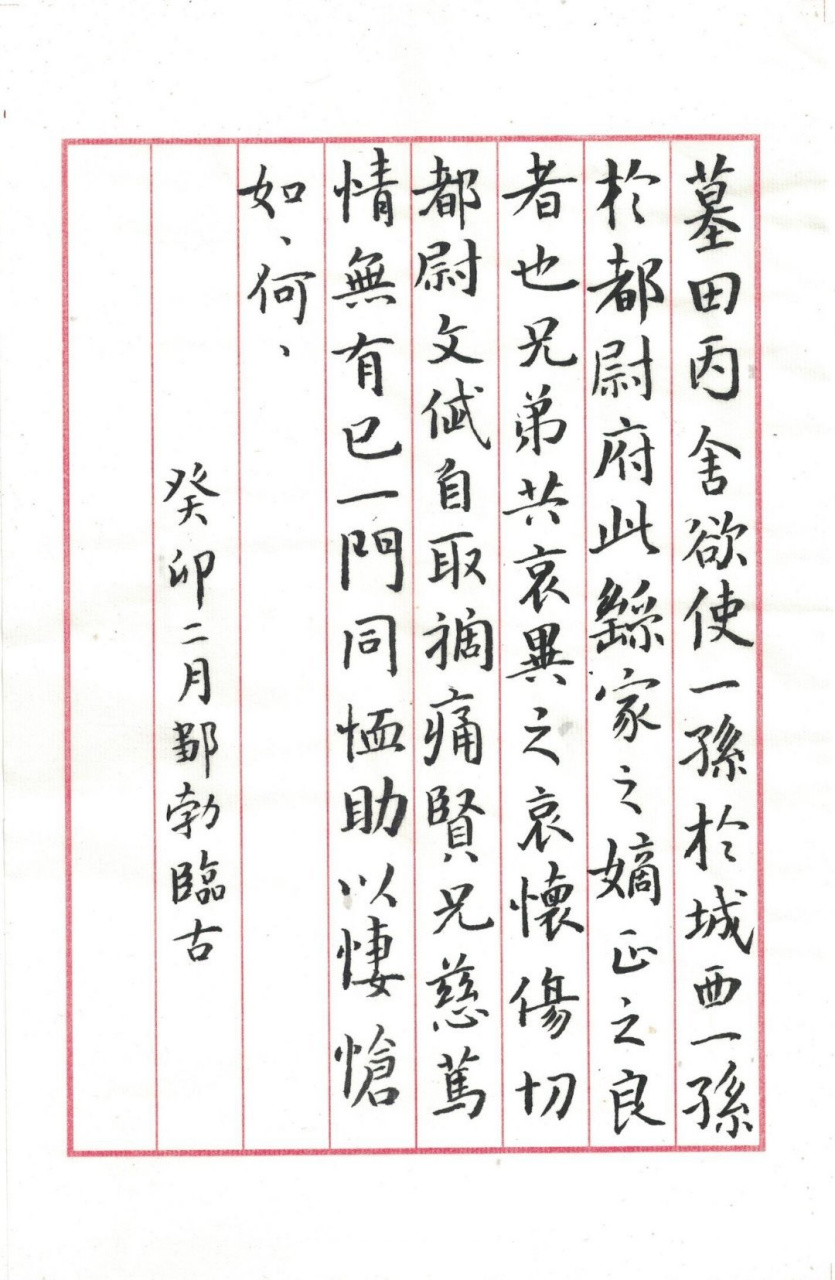 墓田丙舍欲使一孫於城西一孫
於都尉府此繇家之嫡正之良
者也兄弟共哀異之哀懷傷切
都尉文岱自取禍痛賢兄慈篤
情無有已一門同恤助以悽愴
如、何、
癸卯二月勃臨古